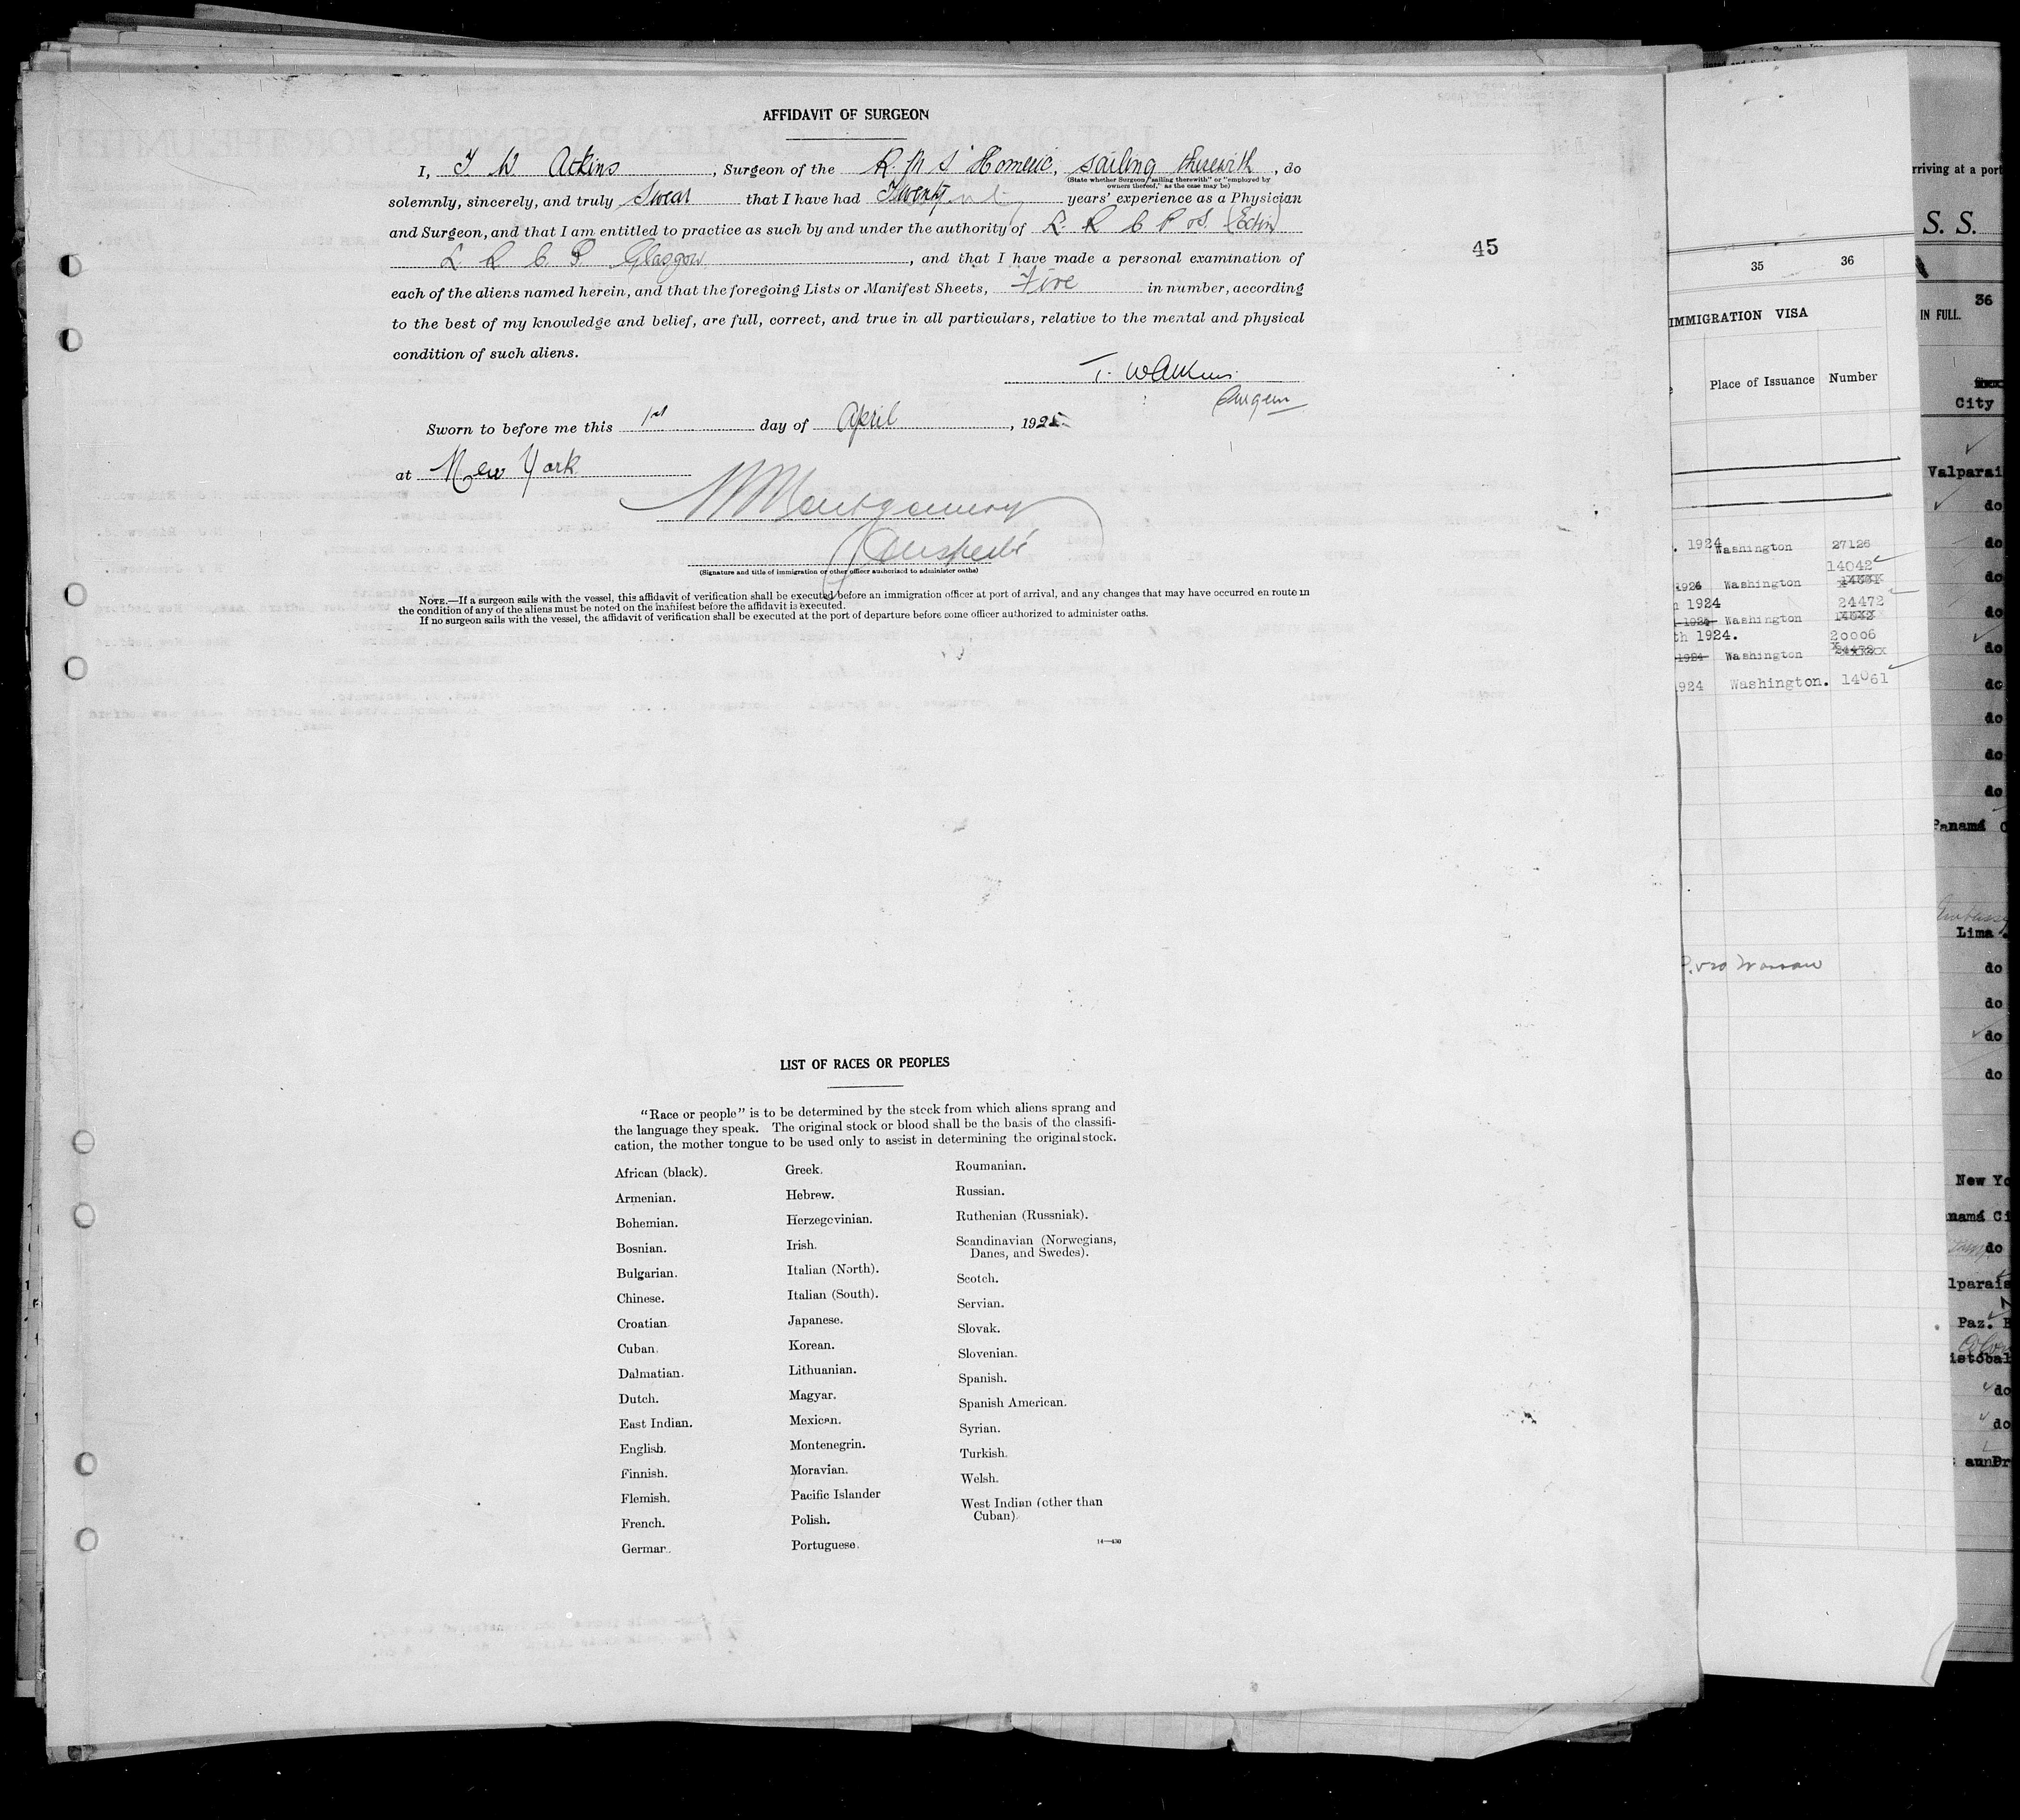 AFFIDAVIT OF SURGEON
I, T W Atkins, Surgeon of the R.M.S Homeric, sailing therewith, do
(State whether Surgeon "sailing therewith" or "employed by
owners thereof," as the case may be)
solemnly, sincerely, and truly Swear that I have had Twenty years' experience as a Physician
and Surgeon, and that I am entitled to practice as such by and under the authority of L R C P & S. (Edin)
L R C P Glasgow, and that I have made a personal examination of
each of the aliens named herein, and that the foregoing Lists or Manifest Sheets, Five in number, according
to the best of my knowledge and belief, are full, correct, and true in all particulars, relative to the mental and physical
condition of such aliens.
T. W Atkins
Surgeon
Sworn to before me this 1st day of April, 1925
at New York
Montgomery
(Signature and title of immigration or other officer authorized to administer oaths)
NOTE.—If a surgeon sails with the vessel, this affidavit of verification shall be executed before an immigration officer at port of arrival, and any changes that may have occurred en route in
the condition of any of the aliens must be noted on the manifest before the affidavit is executed.
If no surgeon sails with the vessel, the affidavit of verification shall be executed at the port of departure before some officer authorized to administer oaths.
45
LIST OF RACES OR PEOPLES
"Race or people" is to be determined by the stock from which aliens sprang and
the language they speak. The original stock or blood shall be the basis of the classifi-
cation, the mother tongue to be used only to assist in determining the original stock.
African (black).
Armenian.
Bohemian.
Bosnian.
Bulgarian.
Chinese.
Croatian.
Cuban.
Dalmatian.
Dutch.
East Indian.
English.
Finnish.
Flemish.
French.
German.
Greek.
Hebrew.
Herzegovinian.
Irish.
Italian (North).
Italian (South).
Japanese.
Korean.
Lithuanian.
Magyar.
Mexican.
Montenegrin.
Moravian.
Pacific Islander
Polish.
Portuguese.
Roumanian.
Russian.
Ruthenian (Russniak).
Scandinavian (Norwegians,
Danes, and Swedes).
Scotch.
Servian.
Slovak.
Slovenian.
Spanish.
Spanish American.
Syrian.
Turkish.
Welsh.
West Indian (other than
Cuban).
14—430
35 36
IMMIGRATION VISA
Place of Issuance Number
1924 Washington 27126
14042
1926 Washington
1924 24472
1924 Washington 14042
th 1924. 20006
1924 Washington 24472
924 Washington. 14061
rriving at a port
S. S.
36
IN FULL.
City
Valparai
do
do
do
do
do
do
do
do
do
Panamá C
Lima
do
do
do
do
New Yo
namá Ci
do
lparais
Paz. B
istobal
do
do